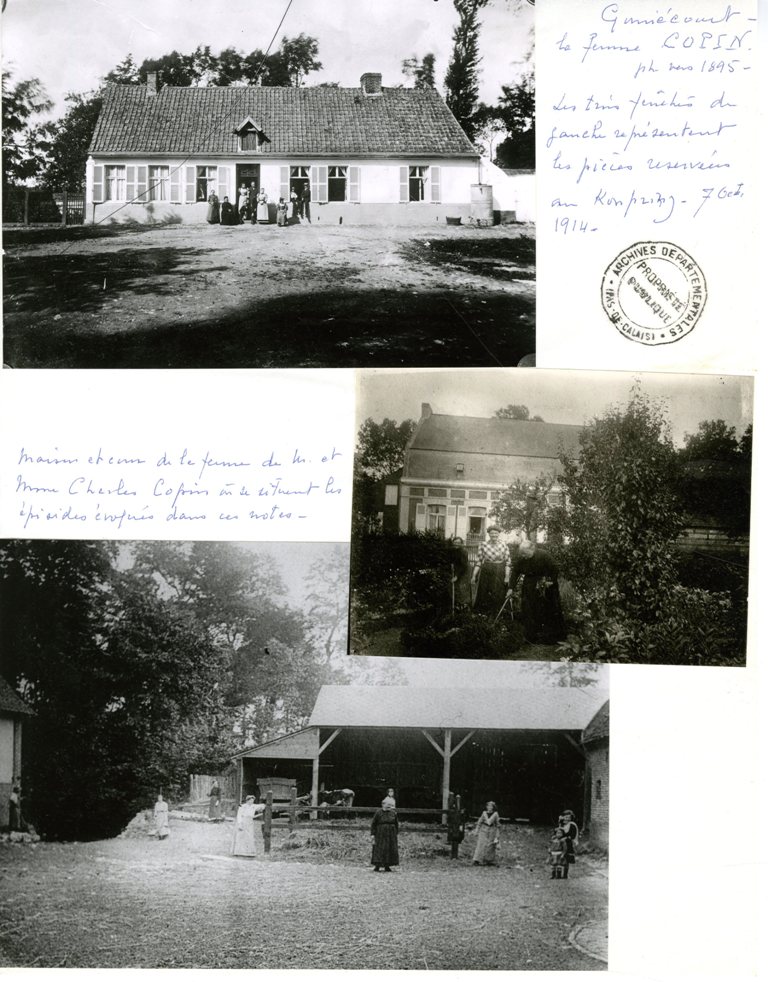 Gomiécourt -
la ferme COPIN.
ph. vers 1895 -
Les trois fenêtres de
gauche représentent
les pièces reservées
au Kronprinz - 7 Oct.
1914 -
ARCHIVES DEPARTEMENTALES
PROPRIETE
PUBLIQUE
(PAS-DE-CALAIS)
Maison et cour de la ferme de M. et
Mme Charles Copin où se situent les
épisodes évoqués dans ces notes -